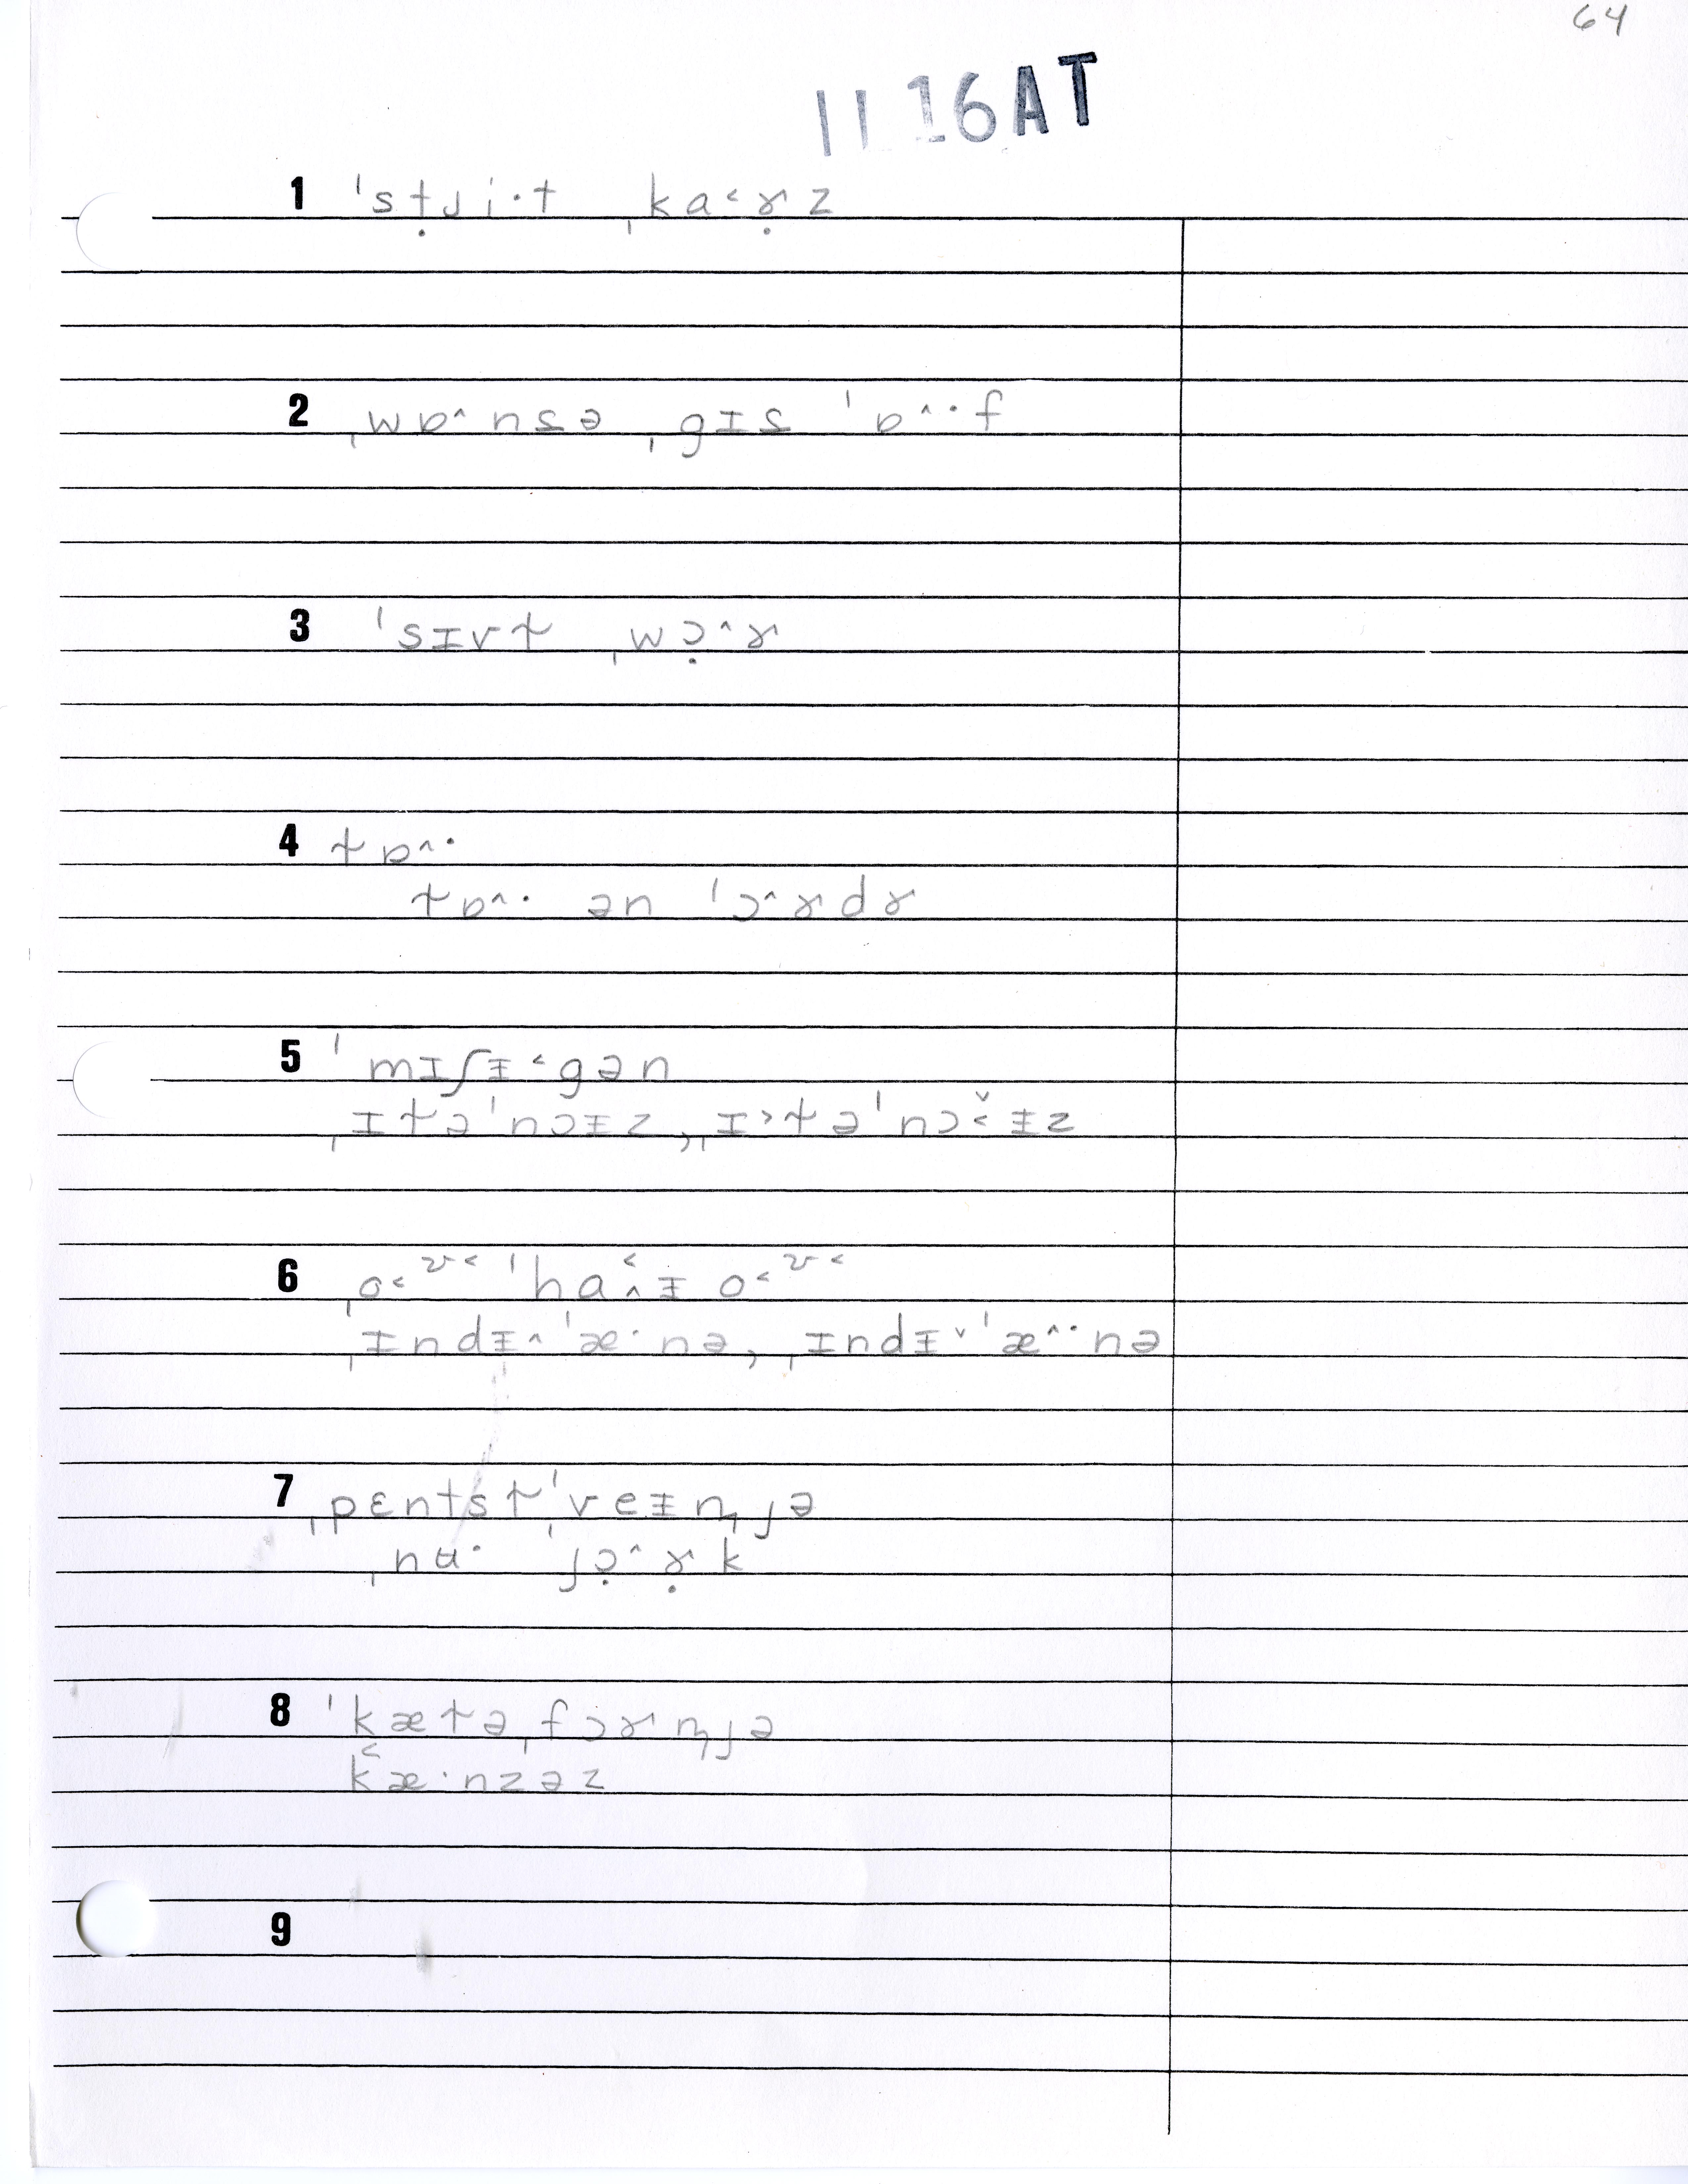 64
11 16AT
1 ˈsṭɹi·t ˌka˂ɚ̣z
2 ˌwɒ˄nsə ˌgɪs ˈɒ˄·f
3 ˈsɪvt̬ ˌwɔ̣˄ɚ
4 t̬ɒ˄·
t̬ɒ˄· ən ˈɔ˄ɚdɚ
5 ˈmɪʃɪ˂gən
ˌɪt̬əˈnɔɪz, ˌɪ˃t̬əˈnɔ̬˂ɪz
6 ˌo˂ʊ˂ ˈha˄˂ɪo˂ʊ˂
ˌɪndɪ˄ˈæ·nə, ˌɪndɪ˅ˈæ˄·nə
7 ˌpɛntst̬ˈveɪnɪjə
ˌnʉ· ˈjɔ̣˄ɚ̣k
8 ˈkæt̬əˌfɔɚnɪjə
k˂æ·nzəz
9